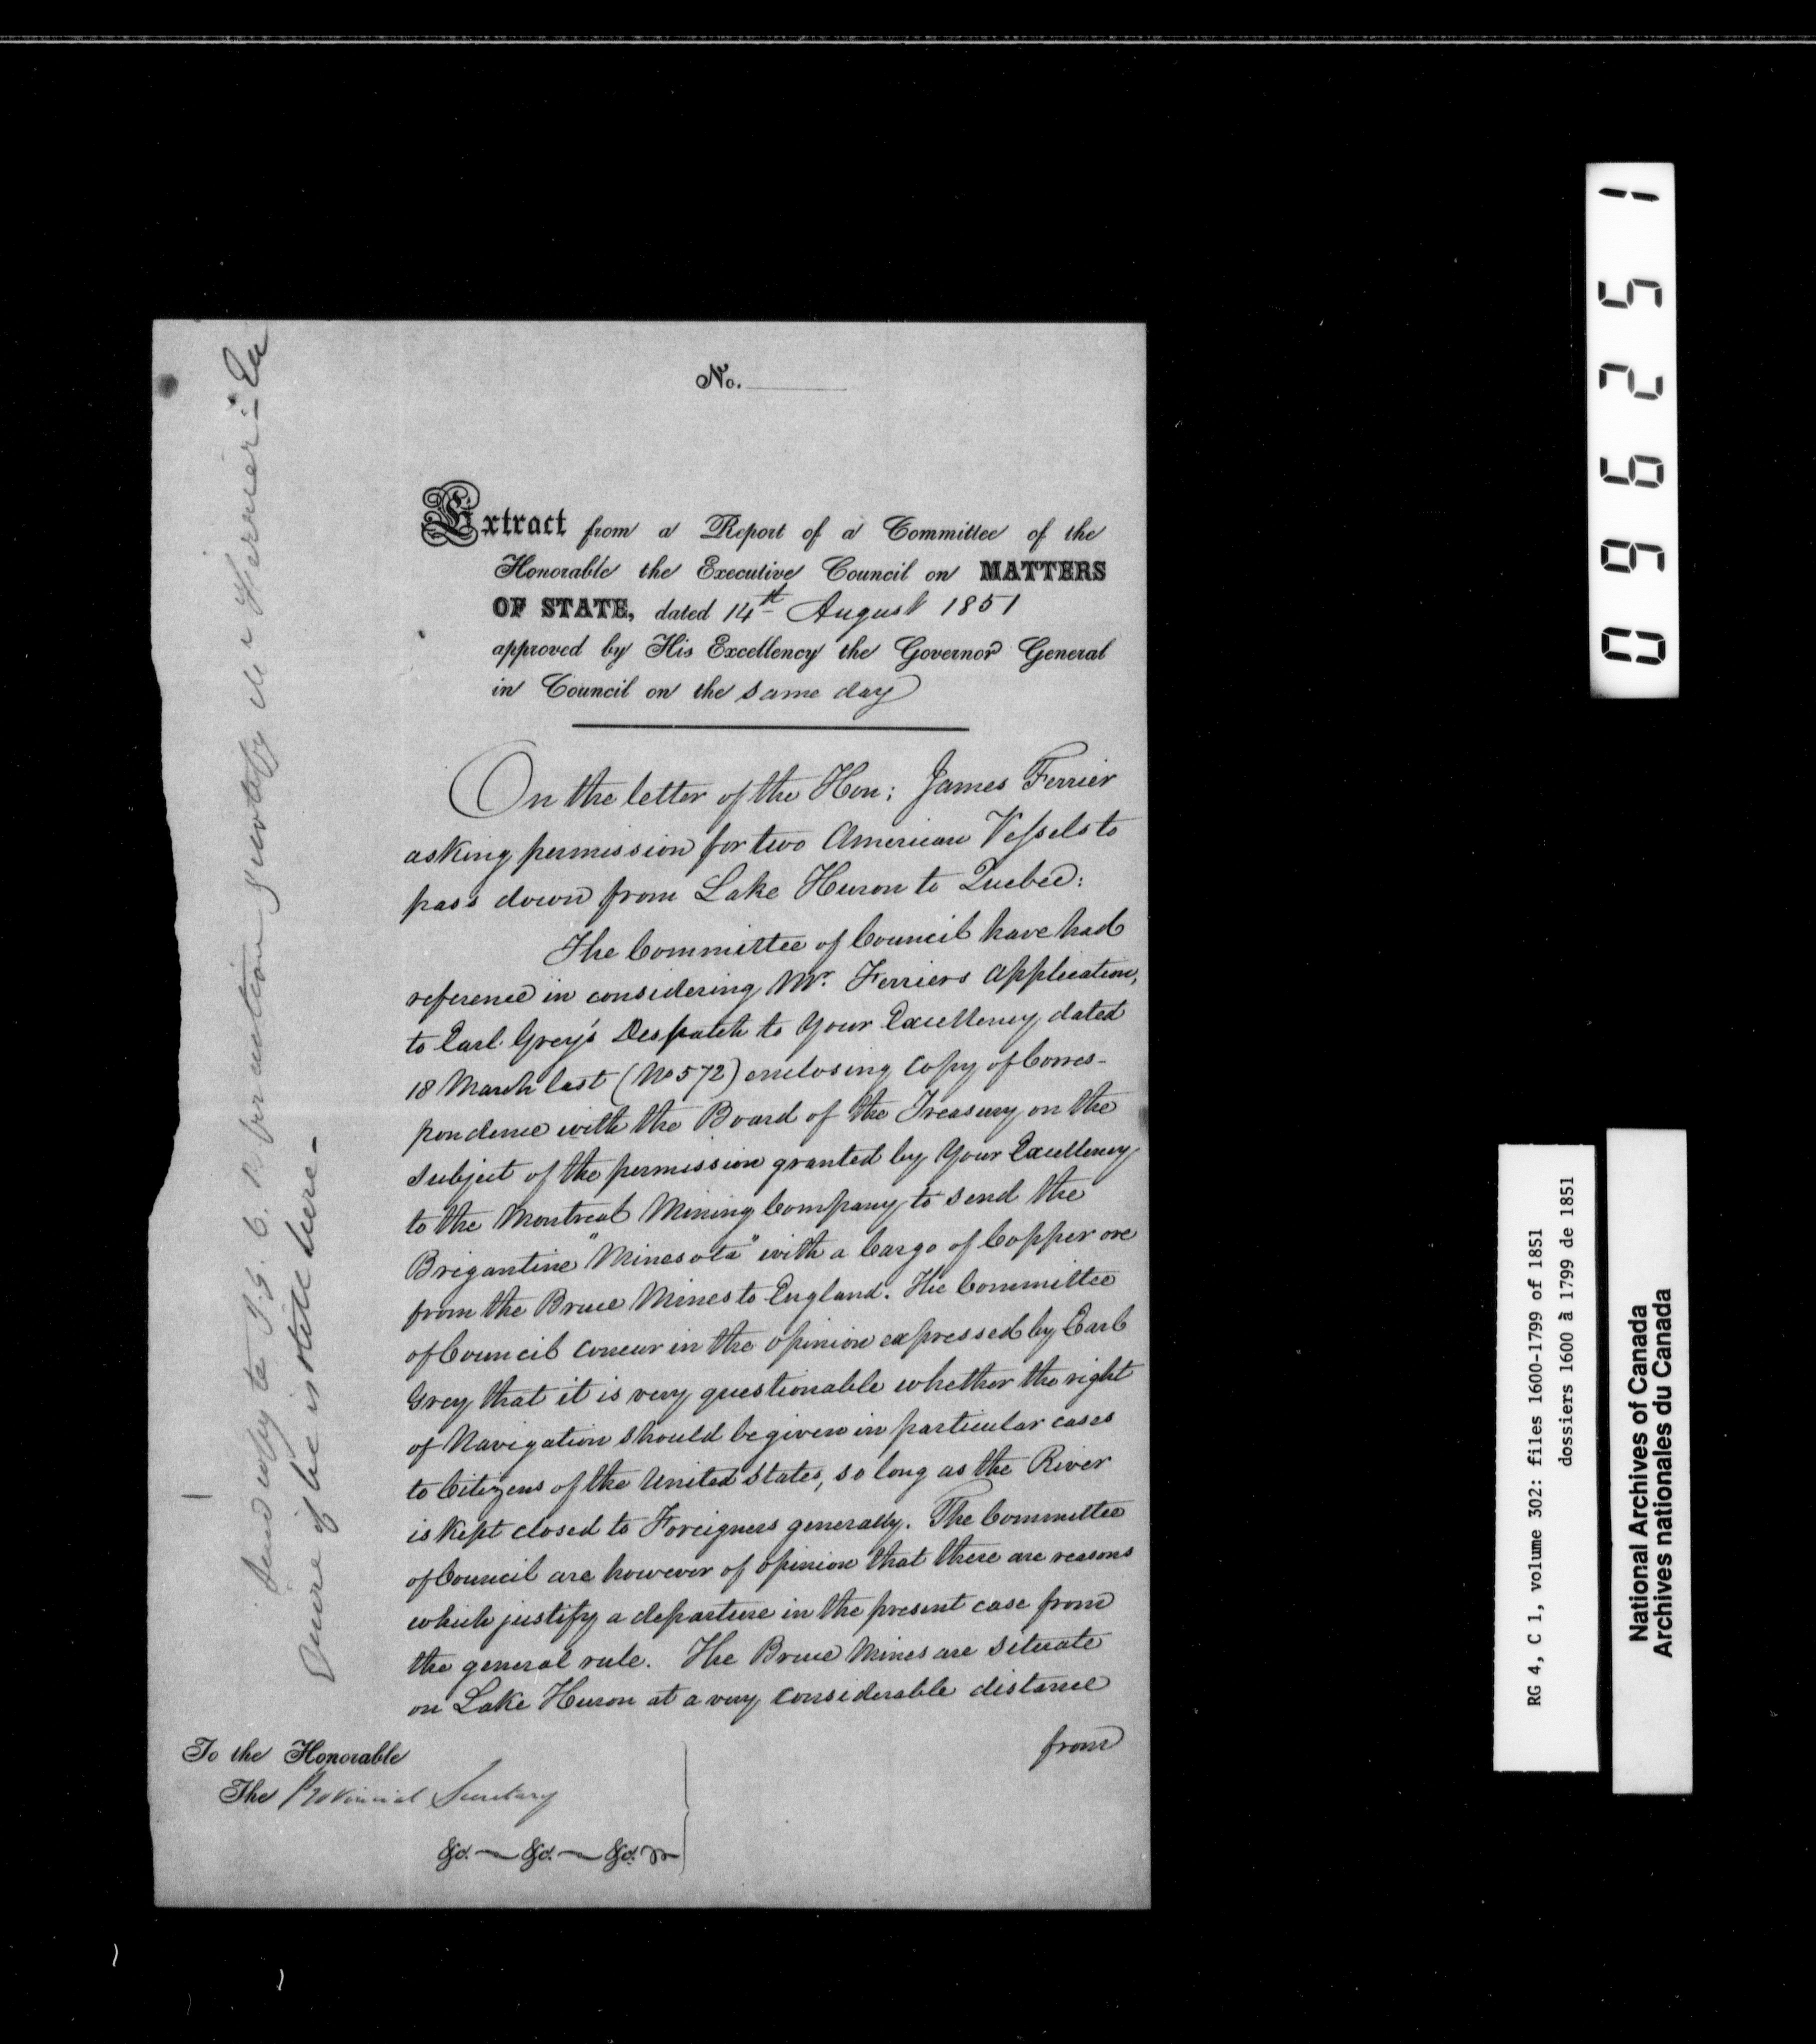 No.
Extract from a Report of a Committee of the
Honorable the Executive Council on MATTERS
OF STATE, dated 14th August 1851
approved by His Excellency the Governor General
in Council on the same day
On the letter of the Hon: James Ferrier
asking permission for two American Vessels to
pass down from Lake Huron to Quebec:
The Committee of Council have had
reference in considering Mr. Ferriers application,
to Earl Grey's Despatch to Your Excellency dated
18 March last (No 572) enclosing copy of Corres-
pondence with the Board of the Treasury on the
subject of the permission granted by Your Excellency
to the Montreal Mining Company to send the
Brigantine "Minesota" with a Cargo of Copper ore
from the Bruce Mines to England. The Committee
of Council concur in the opinion expressed by Earl
Grey that it is very questionable whether the right
of Navigation should be given in particular cases
to Citizens of the United States, so long as the River
is kept closed to Foreigners generally. The Committee
of Council are however of opinion that there are reasons
which justify a departure in the present case from
the general rule. The Bruce Mines are situate
on Lake Huron at a very considerable distance
from
To the Honorable
The Provincial Secretary
&c. &c. &c.
Send copy to I. G. &
Ferrier
Quere if he is still here -
096251
RG 4, C 1, volume 302: files 1600-1799 of 1851
dossiers 1600 à 1799 de 1851
National Archives of Canada
Archives nationales du Canada